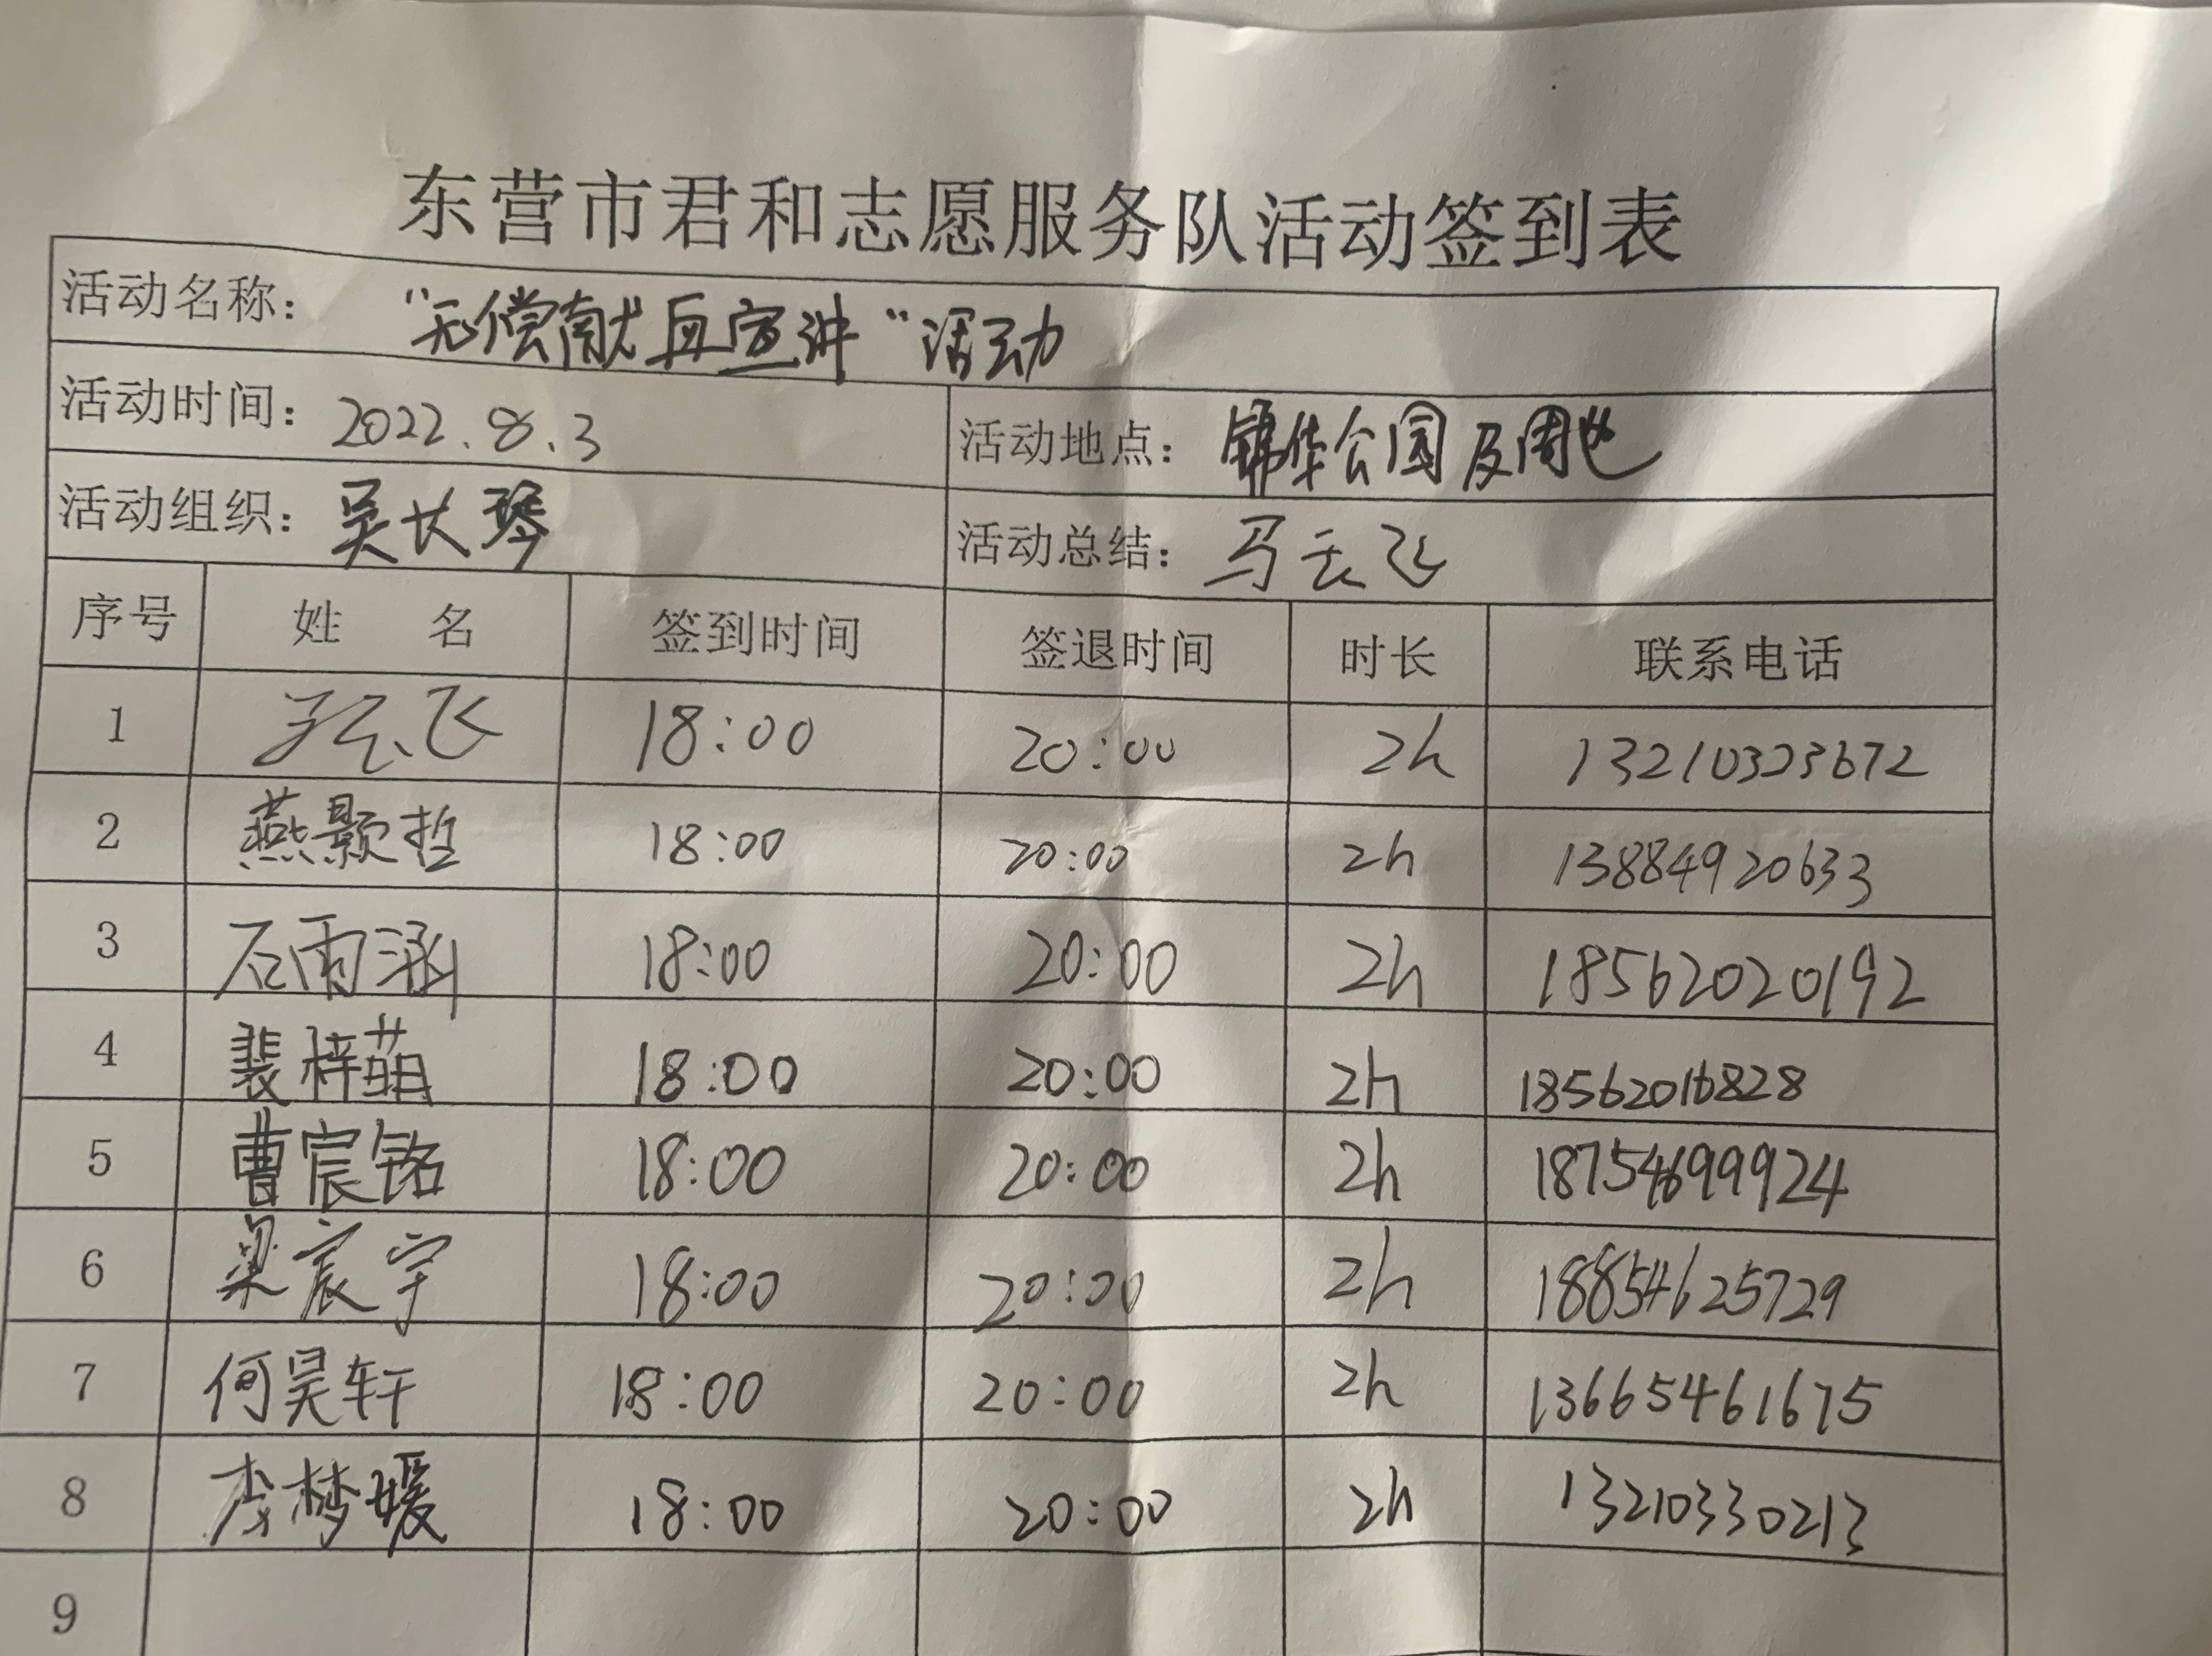 东营市君和志愿服务队活动签到表
活动名称： “无偿献血宣讲”活动
活动时间： 2022.8.3 活动地点： 锦华公园及周边
活动组织： 吴长琴 活动总结： 马云飞
序号 姓 名 签到时间 签退时间 时长 联系电话
1 马云飞 18:00 20:00 2h 13210323672
2 燕颢哲 18:00 20:00 2h 13884920633
3 石雨涵 18:00 20:00 2h 18562020192
4 裴梓萌 18:00 20:00 2h 18562016828
5 曹宸铭 18:00 20:00 2h 18754699924
6 梁宸宇 18:00 20:00 2h 18854625729
7 何昊轩 18:00 20:00 2h 13665461675
8 李梦媛 18:00 20:00 2h 13210330213
9